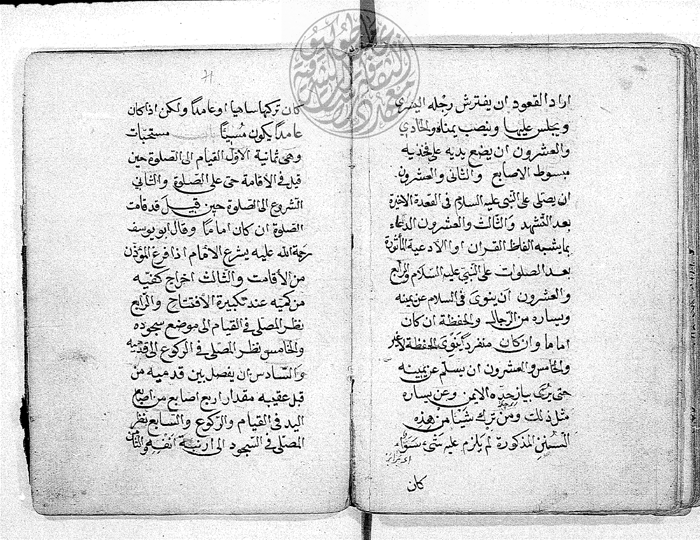 اراد القعود ان يفترش رجله اليسرى
ويجلس عليها وينصب يمناه والحادي
والعشرون ان يضع يديه على فخذيه
مبسوط الاصابع والثاني والعشرون
ان يصلى على النبى عليه السلام فى القعدة الاخيرة
بعد التشهد والثالث والعشرون الدعاء
بما يشبه الفاظ القران او الادعية المأثورة
بعد الصلوات على النبي عليه السلام والرابع
والعشرون ان ينوى فى السلام عن يمينه
ويساره من الرجال والحفظة ان كان
اماما وان كان منفردا ينوى الحفظة
والخامس والعشرون ان يسلم عن يمينه
حتى يرى بياض خده الايمن وعن يساره
مثل ذلك ومن ترك شيئا من هذه
السنن المذكورة لم يلزم عليه شئ سواء
كان
كان تركها ساهيا او عامدا ولكن اذا كان
عامدا يكون مسيئا مستحبات
وهى ثمانية الاول القيام الى الصلوة حين
قيل فى الاقامة حى على الصلوة والثانى
الشروع الى الصلوة حين قيل قد قامت
الصلوة ان كان اماما وقال ابو يوسف
رحمة الله عليه يشرع الامام اذا فرغ المؤذن
من الاقامت والثالث اخراج كفيه
من كميه عند تكبيرة الافتتاح والرابع
نظر المصلى فى القيام الى موضع سجوده
والخامس نظر المصلى فى الركوع الى قدميه
والسادس ان يفصل بين قدميه من
قبل عقبيه مقدار اربع اصابع من اصابع
اليد فى القيام والركوع والسابع نظر
المصلى فى السجود الى ارنبة انفه والثامن